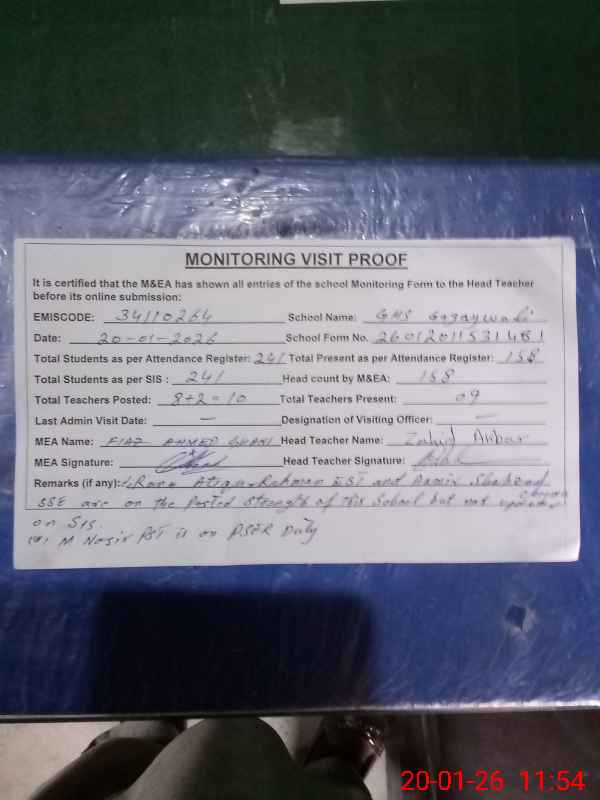 MONITORING VISIT PROOF
It is certified that the M&EA has shown all entries of the school Monitoring Form to the Head Teacher
before its online submission:
EMISCODE: 34110264 School Name: GHS
Date: 20-01-2026 School Form No. 26012011531481
Total Students as per Attendance Register: 241 Total Present as per Attendance Register: 158
Total Students as per SIS : 241 Head count by M&EA: 158
Total Teachers Posted: 8+2=10 Total Teachers Present: 09
Last Admin Visit Date: — Designation of Visiting Officer: —
MEA Name: FIAZ AHMED GHANI Head Teacher Name: Zahid Akbar
MEA Signature: Head Teacher Signature:
Remarks (if any): Rana Atiq ur Rehman EST and Aamir Shahzad
SSE are on the Posted Strength of this School but not
on SIS.
M Nasir PST is on PSER Duty
20-01-26 11:54